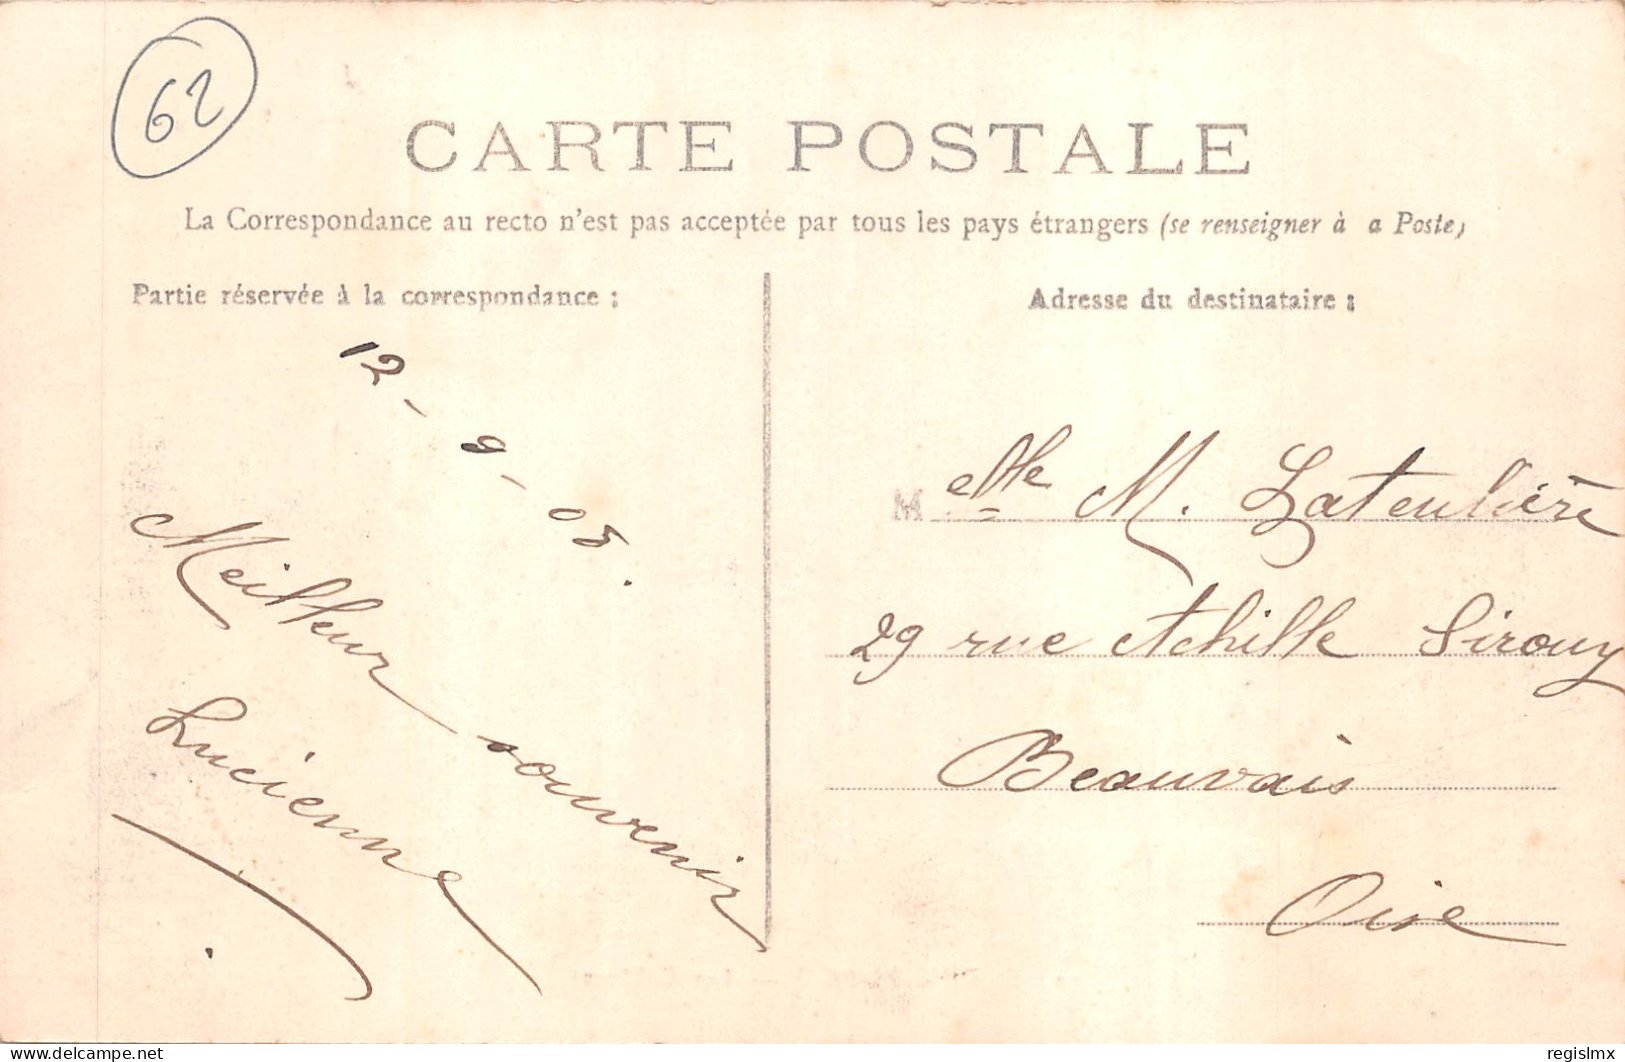 62
CARTE POSTALE
La Correspondance au recto n'est pas acceptée par tous les pays étrangers (se renseigner à a Poste)
Partie réservée à la correspondance :
12-9-05.
Meilleur souvenir
Lucienne
Adresse du destinataire :
Melle M. Lateulière
29 rue Achille Sirouy
Beauvais
Oise
regislmx
Delcampe.net